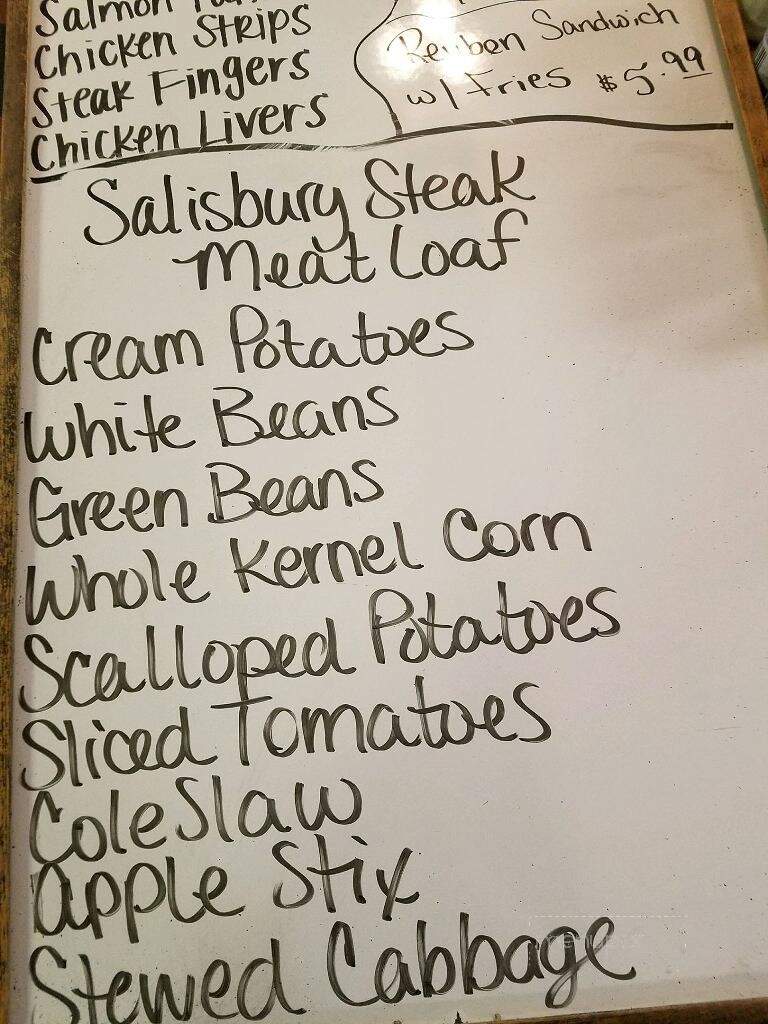 Salmon
Chicken Strips
Steak Fingers
Chicken Livers
Reuben Sandwich
w/ Fries $5.99
Salisbury Steak
Meat Loaf
Cream Potatoes
White Beans
Green Beans
Whole Kernel Corn
Scalloped Potatoes
Sliced Tomatoes
Cole Slaw
Apple Stix
Stewed Cabbage